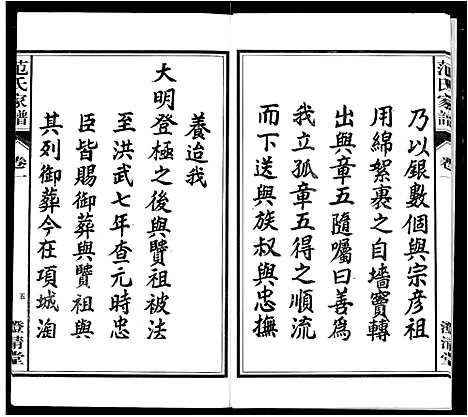 范氏家譜
卷一
澄清堂
乃以銀數個與宗彦祖
用綿絮裹之自墻竇轉
出與章五隨囑曰善為
我立孤章五得之順流
而下送與族叔與忠撫
養迨我
大明登極之後與贊祖被法
至洪武七年查元時忠
臣皆賜御葬與贊祖與
其列御葬今在項城淘
范氏家譜
卷一
五
澄清堂